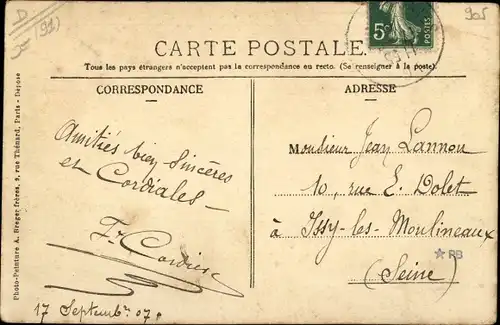 D
(91)
905
5c
CARTE POSTALE
Tous les pays étrangers n'acceptent pas la correspondance au recto. (Se renseigner à la poste).
CORRESPONDANCE
ADRESSE
Amitiés bien sincères
et Cordiales —
Fr. Cordier
17 Septembre 07.
Monsieur Jean Lannou
10, rue E. Dolet
à Issy-les-Moulineaux
(Seine)
★ PB
Photo-Peinture A. Breger frères, 9, rue Thénard, Paris - Déposé